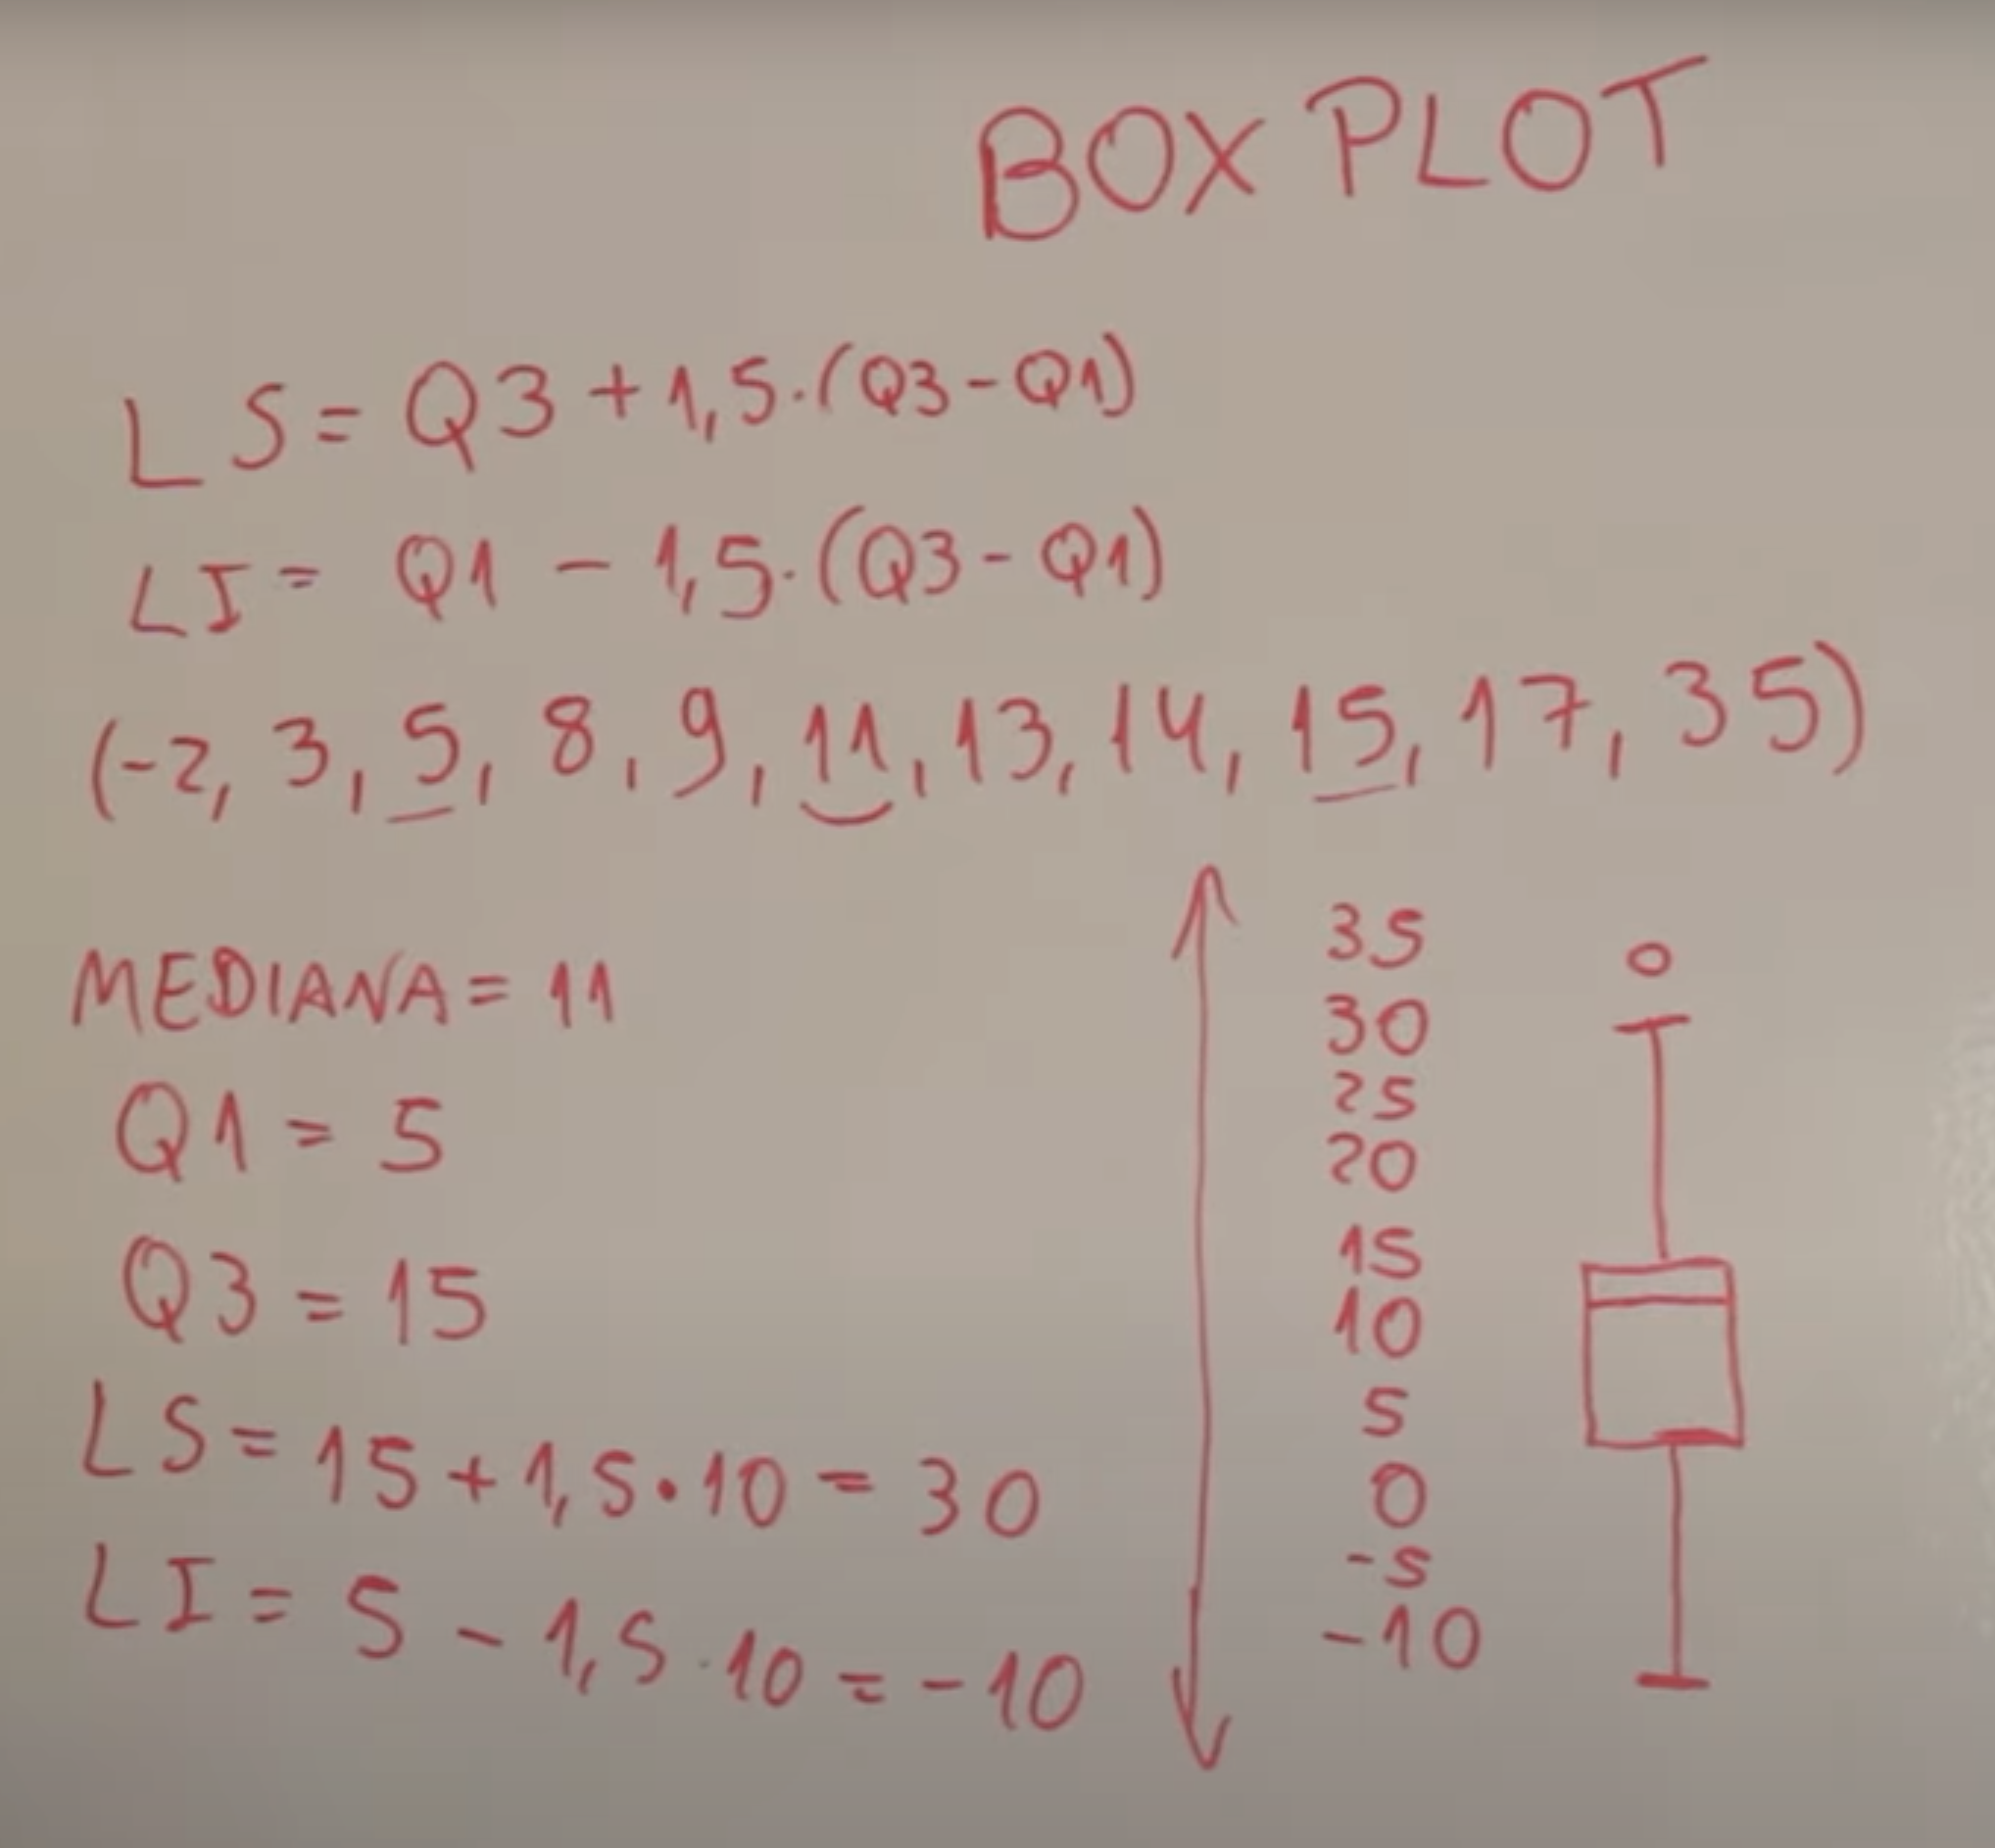 BOX PLOT
LS = Q3 + 1,5·(Q3 - Q1)
LI = Q1 - 1,5·(Q3 - Q1)
(-2, 3, 5, 8, 9, 11, 13, 14, 15, 17, 35)
MEDIANA = 11
Q1 = 5
Q3 = 15
LS = 15 + 1,5·10 = 30
LI = 5 - 1,5·10 = -10
35
30
25
20
15
10
5
0
-5
-10